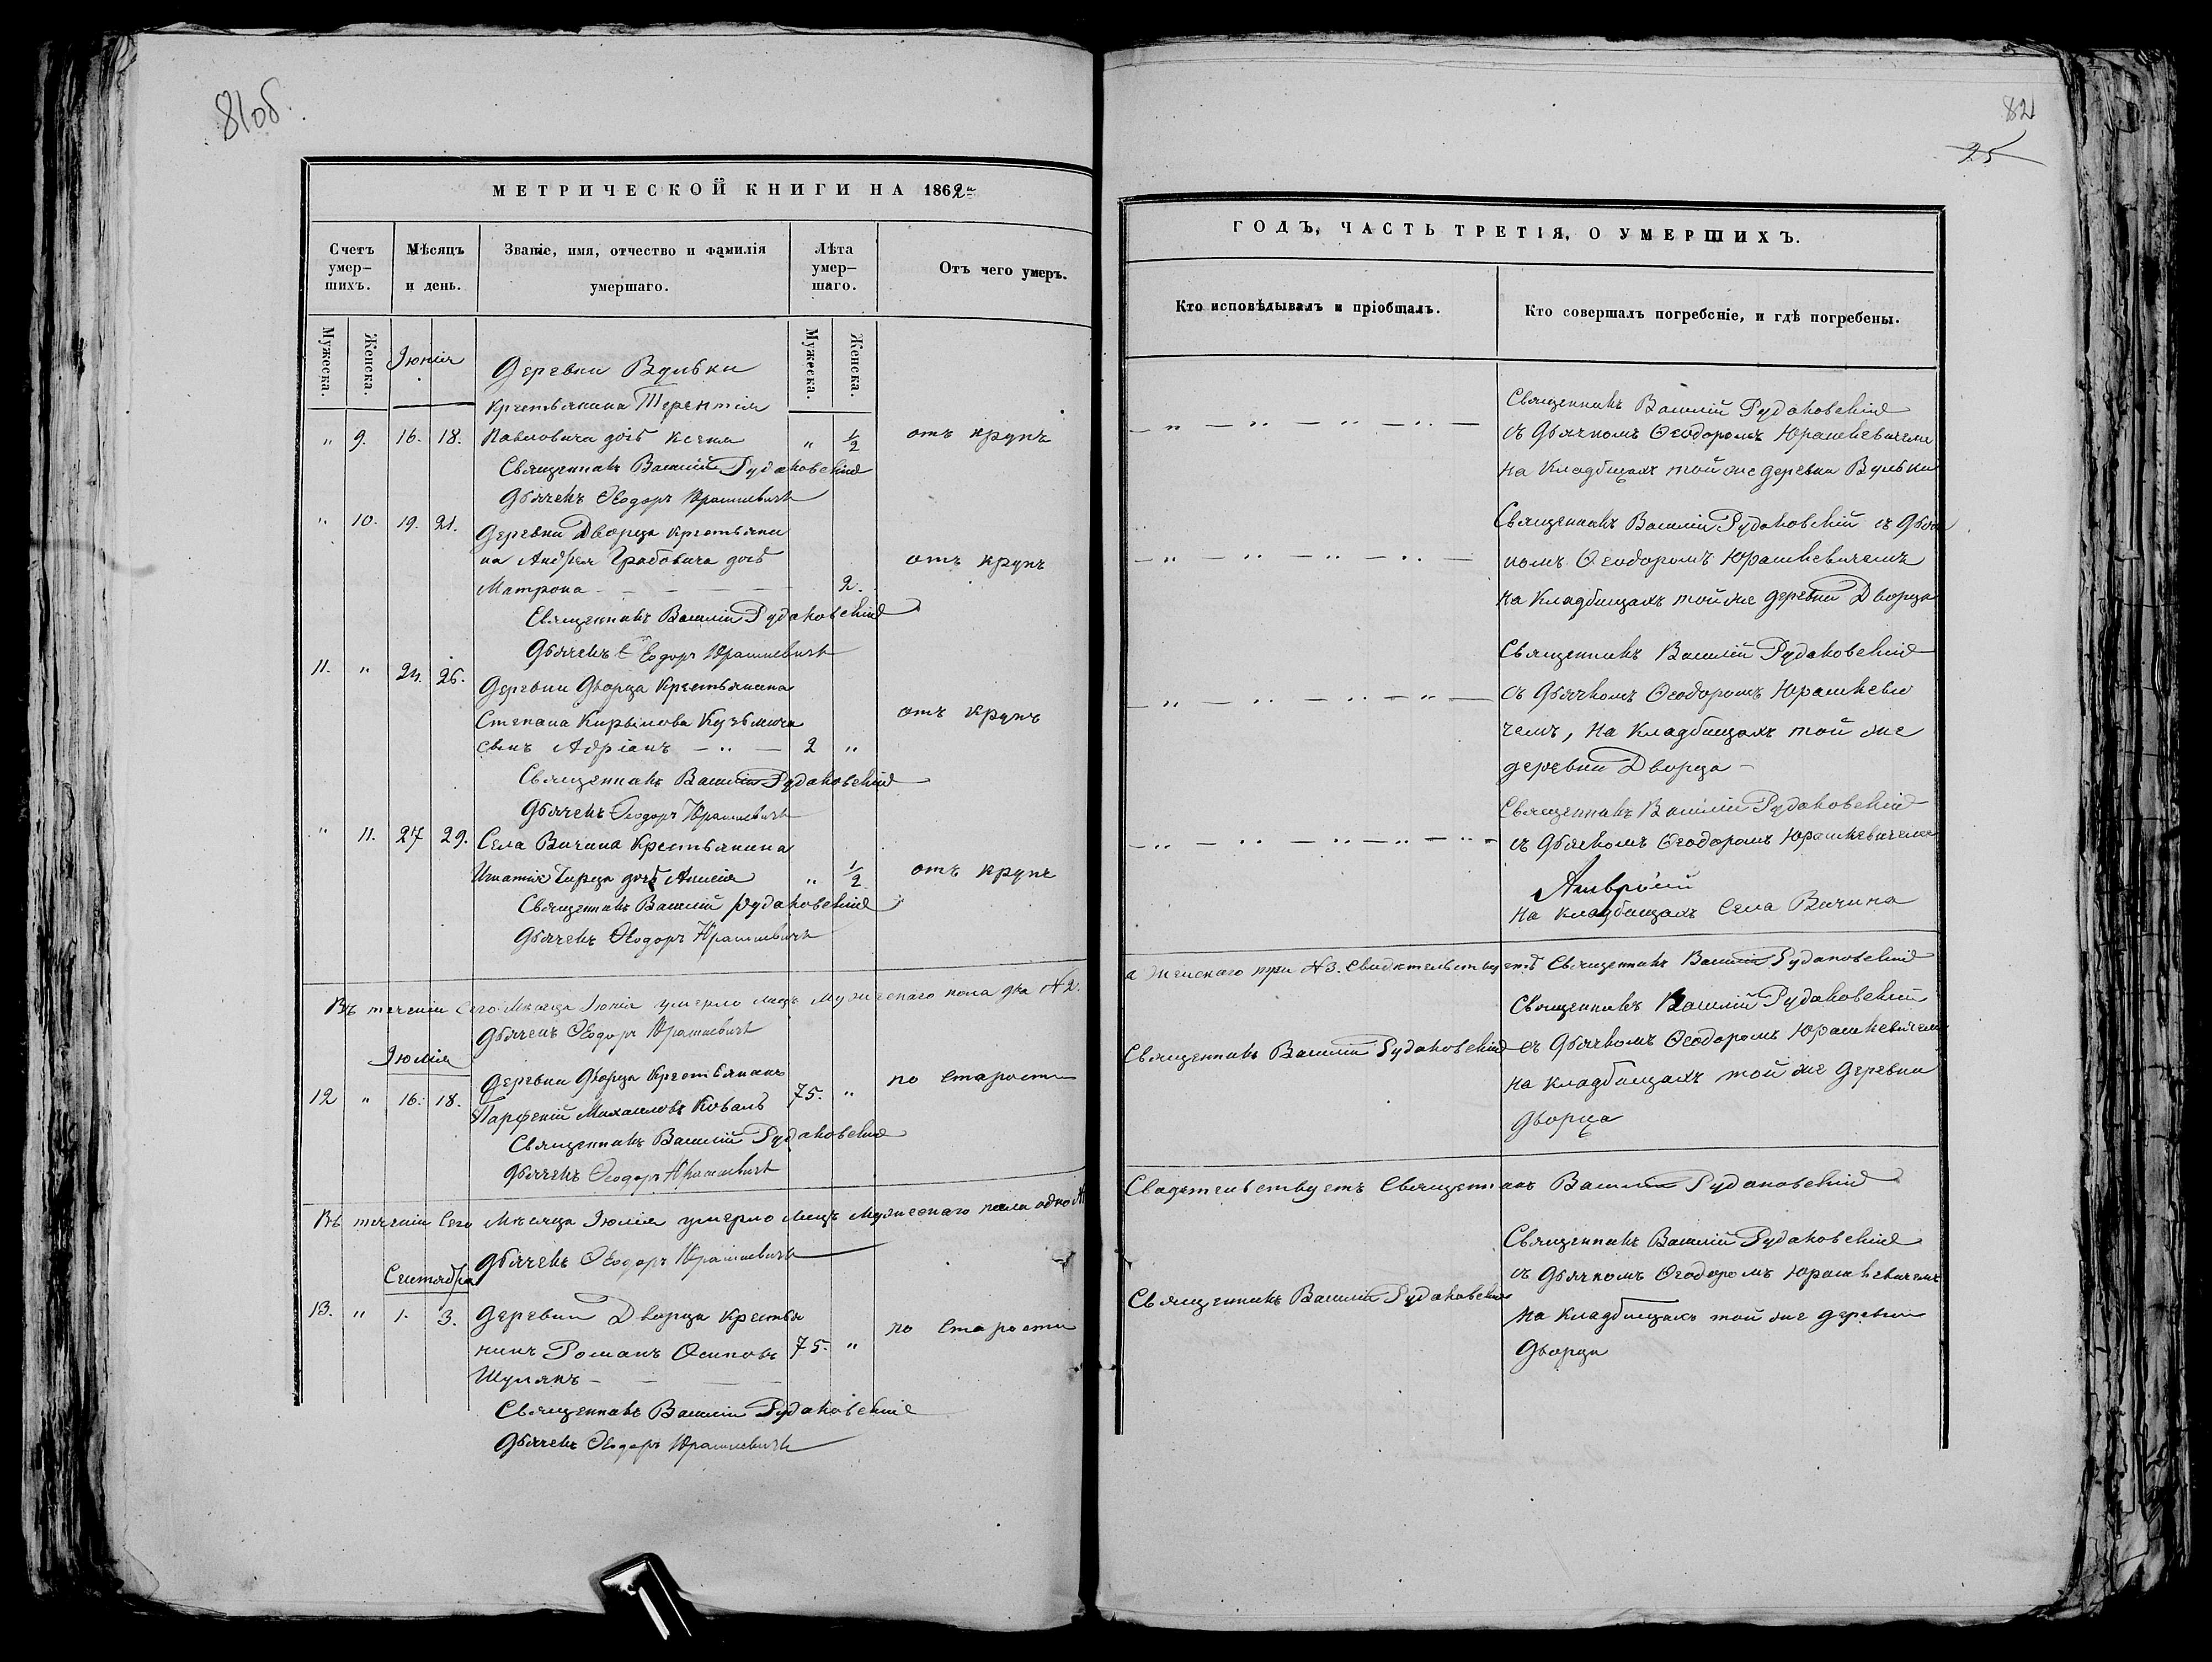 81об.
МЕТРИЧЕСКОЙ КНИГИ НА 1862й
Счетъ умер-шихъ.
Мѣсяцъ и день.
Званіе, имя, отчество и фамилія умершаго.
Лѣта умер-шаго.
Отъ чего умеръ.
Мужеска.
Женска.
Мужеска.
Женска.
Іюнія
Деревни Вульки
крестьянина Терентія
„ 9. 16. 18. Павловича дочь Ксенія „ 1/2 отъ крупъ
Священникъ Василій Рудаковскій
Дьячекъ Ѳеодоръ Юрашкевичъ
„ 10. 19. 21. Деревни Дворца крестьяни
на Андрея Грабовича дочь отъ крупъ
Матрона — — — 2.
Священникъ Василій Рудаковскій
Дьячекъ Ѳеодоръ Юрашкевичъ
11. „ 24. 26. Деревни Дворца Крестьянина
Степана Кирылова Кузьмича отъ крупъ
сынъ Адріанъ — „ — 2 „
Священникъ Василій Рудаковскій
Дьячекъ Ѳеодоръ Юрашкевичъ
„ 11. 27 29. Села Вичина Крестьянина
Игнатія дочь „ 1/2 отъ крупъ
Священникъ Василій Рудаковскій
Дьячекъ Ѳеодоръ Юрашкевичъ
Въ теченіи сего Мѣсяца Іюнія умерло лицъ мужескаго пола два №2.
Дьячекъ Ѳеодоръ Юрашкевичъ
Іюлія
Деревни Дворца Крестьянинъ
12 „ 16. 18. Парфеній Михаиловъ Коваль 75. „ по старости
Священникъ Василій Рудаковскій
Дьячекъ Ѳеодоръ Юрашкевичъ
Въ теченіи Сего Мѣсяца Іюлія умерло Лицъ Мужескаго пола одно №
Дьячекъ Ѳеодоръ Юрашкевичъ
Сентября
13. „ 1. 3. Деревни Дворца Крестья
нинъ Романъ Осиповъ 75. „ по старости
Шулякъ —
Священникъ Василій Рудаковскій
Дьячекъ Ѳеодоръ Юрашкевичъ
82
25
ГОДЪ, ЧАСТЬ ТРЕТІЯ, О УМЕРШИХЪ.
Кто исповѣдывалъ и пріобщалъ.
Кто совершалъ погребеніе, и гдѣ погребены.
Священникъ Василій Рудаковскій
— „ — „ — „ — „ — съ Дьячкомъ Ѳеодоромъ Юрашкевичемъ
на Кладбищахъ той же деревни Вульки
Священникъ Василій Рудаковскій съ Дьяч
— „ — „ — „ — „ — комъ Ѳеодоромъ Юрашкевичемъ
на Кладбищахъ той же деревни Дворца
Священникъ Василій Рудаковскій
— „ — „ — „ — „ — съ Дьячкомъ Ѳеодоромъ Юрашкеви
чемъ, на Кладбищахъ той же
деревни Дворца —
Священникъ Василій Рудаковскій
— „ — „ — „ — „ — съ Дьячкомъ Ѳеодоромъ Юрашкевичемъ
на кладбищахъ Села Вичина
а женскаго три №3. Свидѣтельствуетъ Священникъ Василій Рудаковскій
Священникъ Василій Рудаковскій
Священникъ Василій Рудаковскій съ Дьячкомъ Ѳеодоромъ Юрашкевичемъ
на кладбищахъ той же деревни
Дворца
Свидѣтельствуетъ Священникъ Василій Рудаковскій
Священникъ Василій Рудаковскій
съ Дьячкомъ Ѳеодоромъ Юрашкевичемъ
Священникъ Василій Рудаковскій на Кладбищахъ той же деревни
Дворца